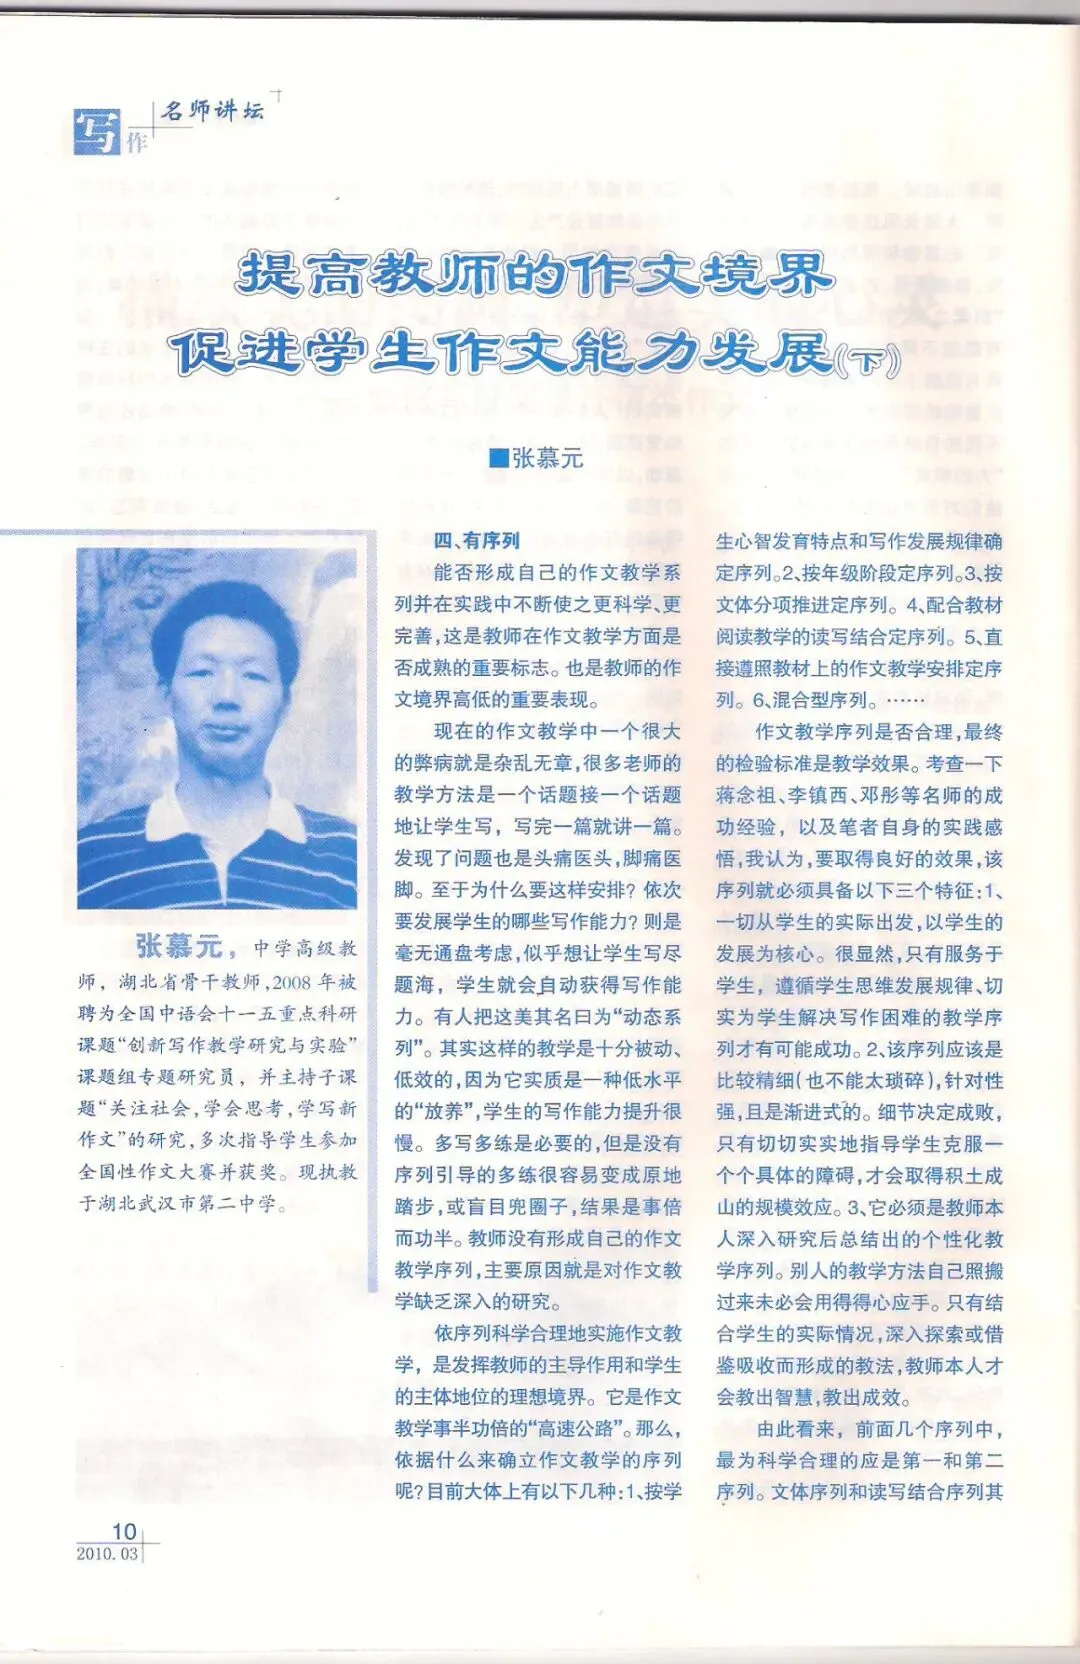 写作
名师讲坛
提高教师的作文境界
促进学生作文能力发展(下)
■张慕元
张慕元，中学高级教
师，湖北省骨干教师,2008年被
聘为全国中语会十一五重点科研
课题“创新写作教学研究与实验”
课题组专题研究员，并主持子课
题“关注社会,学会思考,学写新
作文”的研究,多次指导学生参加
全国性作文大赛并获奖。现执教
于湖北武汉市第二中学。
四、有序列
能否形成自己的作文教学系
列并在实践中不断使之更科学、更
完善,这是教师在作文教学方面是
否成熟的重要标志。也是教师的作
文境界高低的重要表现。
现在的作文教学中一个很大
的弊病就是杂乱无章,很多老师的
教学方法是一个话题接一个话题
地让学生写，写完一篇就讲一篇。
发现了问题也是头痛医头,脚痛医
脚。至于为什么要这样安排？依次
要发展学生的哪些写作能力？则是
毫无通盘考虑,似乎想让学生写尽
题海，学生就会自动获得写作能
力。有人把这美其名曰为“动态系
列”。其实这样的教学是十分被动、
低效的,因为它实质是一种低水平
的“放养”,学生的写作能力提升很
慢。多写多练是必要的,但是没有
序列引导的多练很容易变成原地
踏步,或盲目兜圈子,结果是事倍
而功半。教师没有形成自己的作文
教学序列,主要原因就是对作文教
学缺乏深入的研究。
依序列科学合理地实施作文教
学，是发挥教师的主导作用和学生
的主体地位的理想境界。它是作文
教学事半功倍的“高速公路”。那么,
依据什么来确立作文教学的序列
呢?目前大体上有以下几种:1、按学
生心智发育特点和写作发展规律确
定序列。2、按年级阶段定序列。3、按
文体分项推进定序列。4、配合教材
阅读教学的读写结合定序列。5、直
接遵照教材上的作文教学安排定序
列。6、混合型序列。……
作文教学序列是否合理,最终
的检验标准是教学效果。考查一下
蒋念祖、李镇西、邓彤等名师的成
功经验，以及笔者自身的实践感
悟,我认为,要取得良好的效果,该
序列就必须具备以下三个特征:1、
一切从学生的实际出发,以学生的
发展为核心。很显然,只有服务于
学生，遵循学生思维发展规律、切
实为学生解决写作困难的教学序
列才有可能成功。2、该序列应该是
比较精细(也不能太琐碎),针对性
强,且是渐进式的。细节决定成败,
只有切切实实地指导学生克服一
个个具体的障碍,才会取得积土成
山的规模效应。3、它必须是教师本
人深入研究后总结出的个性化教
学序列。别人的教学方法自己照搬
过来未必会用得得心应手。只有结
合学生的实际情况,深入探索或借
鉴吸收而形成的教法,教师本人才
会教出智慧,教出成效。
由此看来，前面几个序列中,
最为科学合理的应是第一和第二
序列。文体序列和读写结合序列其
10
2010.03